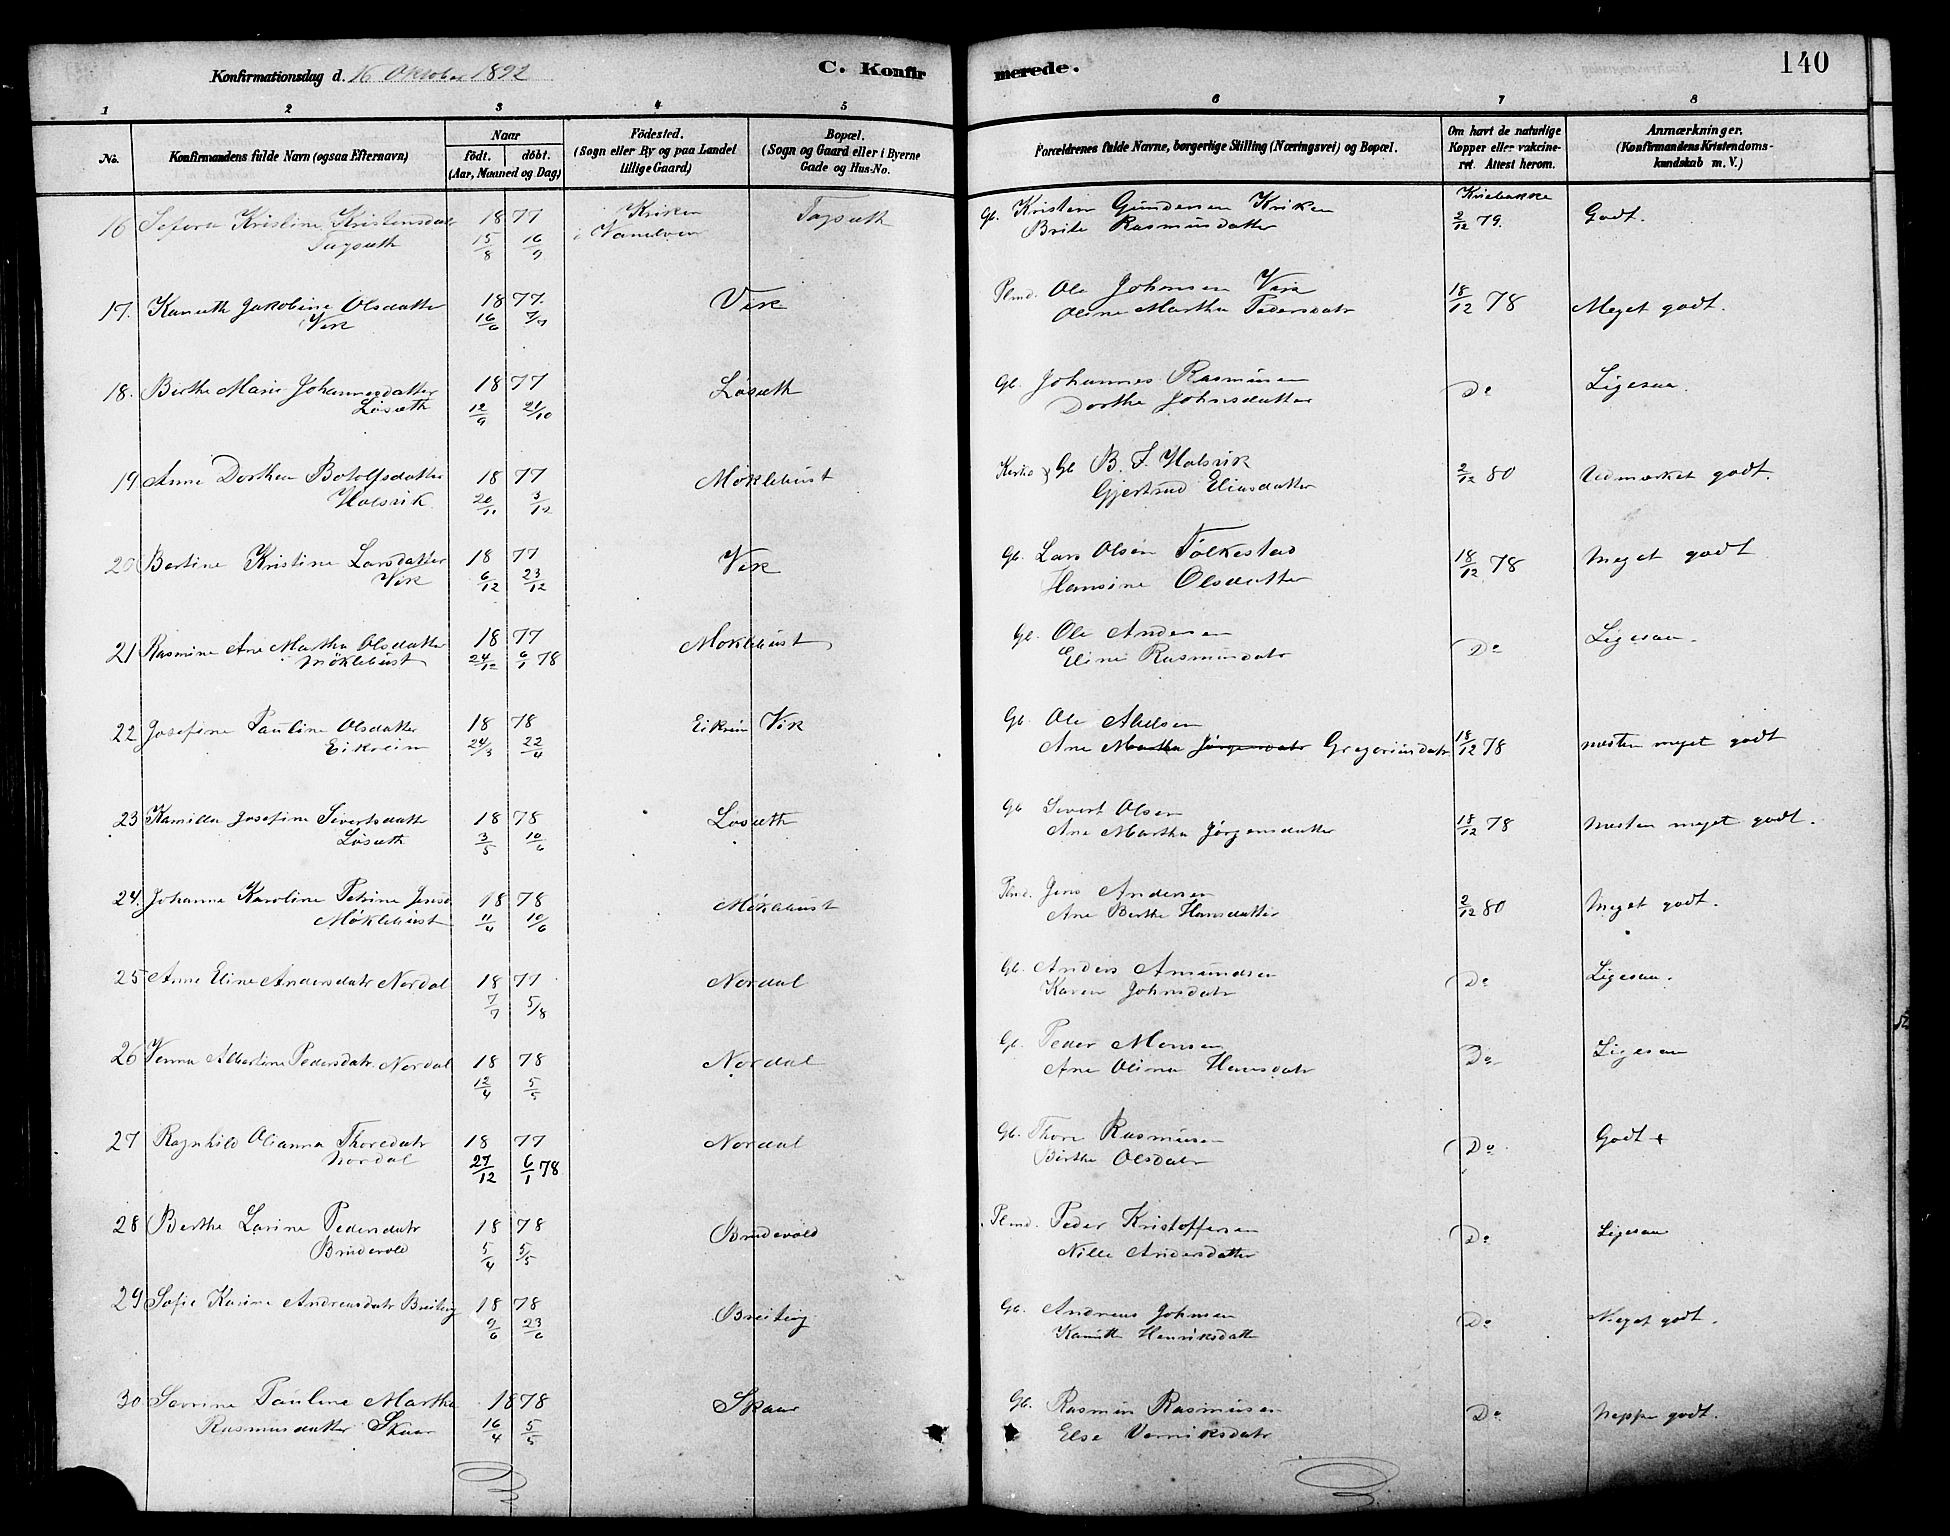 Konfirmationsdag d. 16 Oktober 1892
C. Konfirmerede.
140
1 2 3 4 5 6 7 8
No.
Konfirmandens fulde Navn (ogsaa Efternavn)
Naar
födt. döbt.
(Aar, Maaned og Dag)
Födested.
(Sogn eller By og paa Landet
tillige Gaard)
Bopæl.
(Sogn og Gaard eller i Byerne
Gade og Hus-No.
Forældrenes fulde Navne, borgerlige Stilling (Næringsvei) og Bopæl.
Om havt de naturlige
Kopper eller vakcine-
ret. Attest herom.
Anmærkninger.
(Konfirmandens Kristendoms-
kundskab m. V.)
16 Sefora Kristine Kristensdatr 18 77 Kriken Tagsæth Gb. Kristen Gundersen Kriken 2/12 79. Godt.
Tagsæth 15/8 16/9 i Vanelven Brite Rasmusdatter
17. Kanutte Jakobine Olsdatter 18 77. Vik Plmd. Ole Johnsen Vik 18/12 78 Meget godt.
Vik 16/6 7/7 Oline Martha Pedersdatr
18. Berthe Marie Johannesdatter 18 77 Løsæth Gb. Johannes Rasmusen Do Ligesaa.
Løsæth 12/9 21/10 Dorthe Johnsdatter
19 Anne Dorthea Botolfsdatter 18 77 Møklebust Gb B. J. Holsvik 2/12 80 Udmærket godt.
Holsvik 20/11 3/12 Gjertrud Eliasdatter
20 Bertine Kristine Larsdatter 18 77 Vik Gb. Lars Olsen Folkestad 18/12 78 Meget godt
Vik 6/12 23/12 Hansine Olsdatter
21 Rasmine Ane Martha Olsdatter 18 77 Møklebust Gb. Ole Andersen Do Ligesaa.
Møklebust 24/12 6/1 78 Eline Rasmusdatr
22 Josefine Pauline Olsdatter 18 78 Eikrem Vik Gb. Ole Abelsen
Eikreim 24/3 22/4 Ane Martha Jørgensdatr Gregoriusdatr 18/12 78 næsten meget godt
23 Kamilla Josefine Severtsdatter 18 78 Løsæth Gb Severt Olsen 18/12 78 Næsten meget godt.
Løsæth 3/5 10/6 Ane Martha Jørgensdatter
24. Johanna Karoline Petrine Jensd 18 78 Møklebust Plmd. Jens Andersen 2/12 80 Meget godt.
Møklebust 11/4 10/6 Ane Berthe Hansdatter
25 Anne Eline Andersdatr Nordal 18 77 Nordal Gb. Anders Amundsen Do Ligesaa.
7/7 5/8 Karen Johnsdatr
26 Venna Albertine Pedersdatr Nordal 18 78 Nordal Gb. Peder Monsen Do Ligesaa
12/4 5/5 Ane Olina Hansdatr
27 Ragnhild Olianna Thoredatr 18 77 Nordal Gb. Thore Rasmusen Do Godt +
Nordal 27/12 6/1 78 Birthe Olsdatr
28 Berthe Larine Pedersdatr 18 78 Brudevold Plmd. Peder Kristoffersen Do Ligesaa
Brudevold 5/4 5/5 Nille Andersdatter
29 Sofie Karine Andreasdatr Breiteig 18 78 Breiteig Gb. Andreas Johnsen Do Meget godt.
9/6 23/6 Kanutte Henriksdatter
30 Severine Pauline Martha 1878 Skaar Gb. Rasmus Rasmusen Do Neppe godt.
Rasmusdatter Skaar 16/4 5/5 Else Verniksdatr